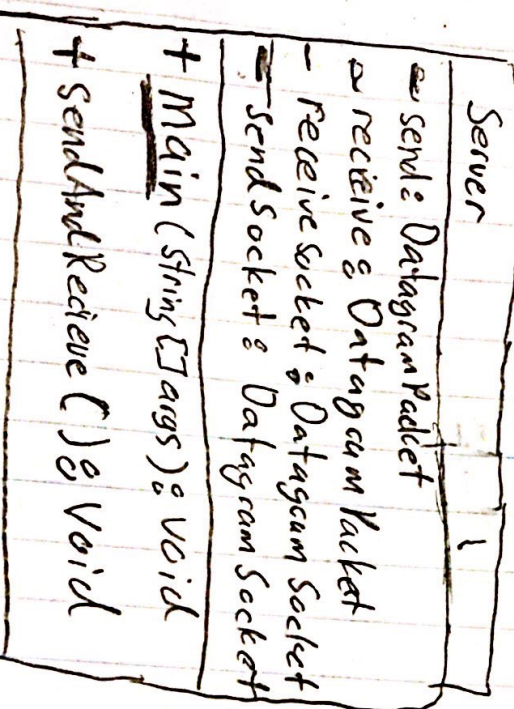 Server
- send: DatagramPacket
- receive: DatagramPacket
- receivesocket: Datagram Socket
- SendSocket: DatagramSocket
+ Main (String[] args): void
+ SendAndRecieve(): Void